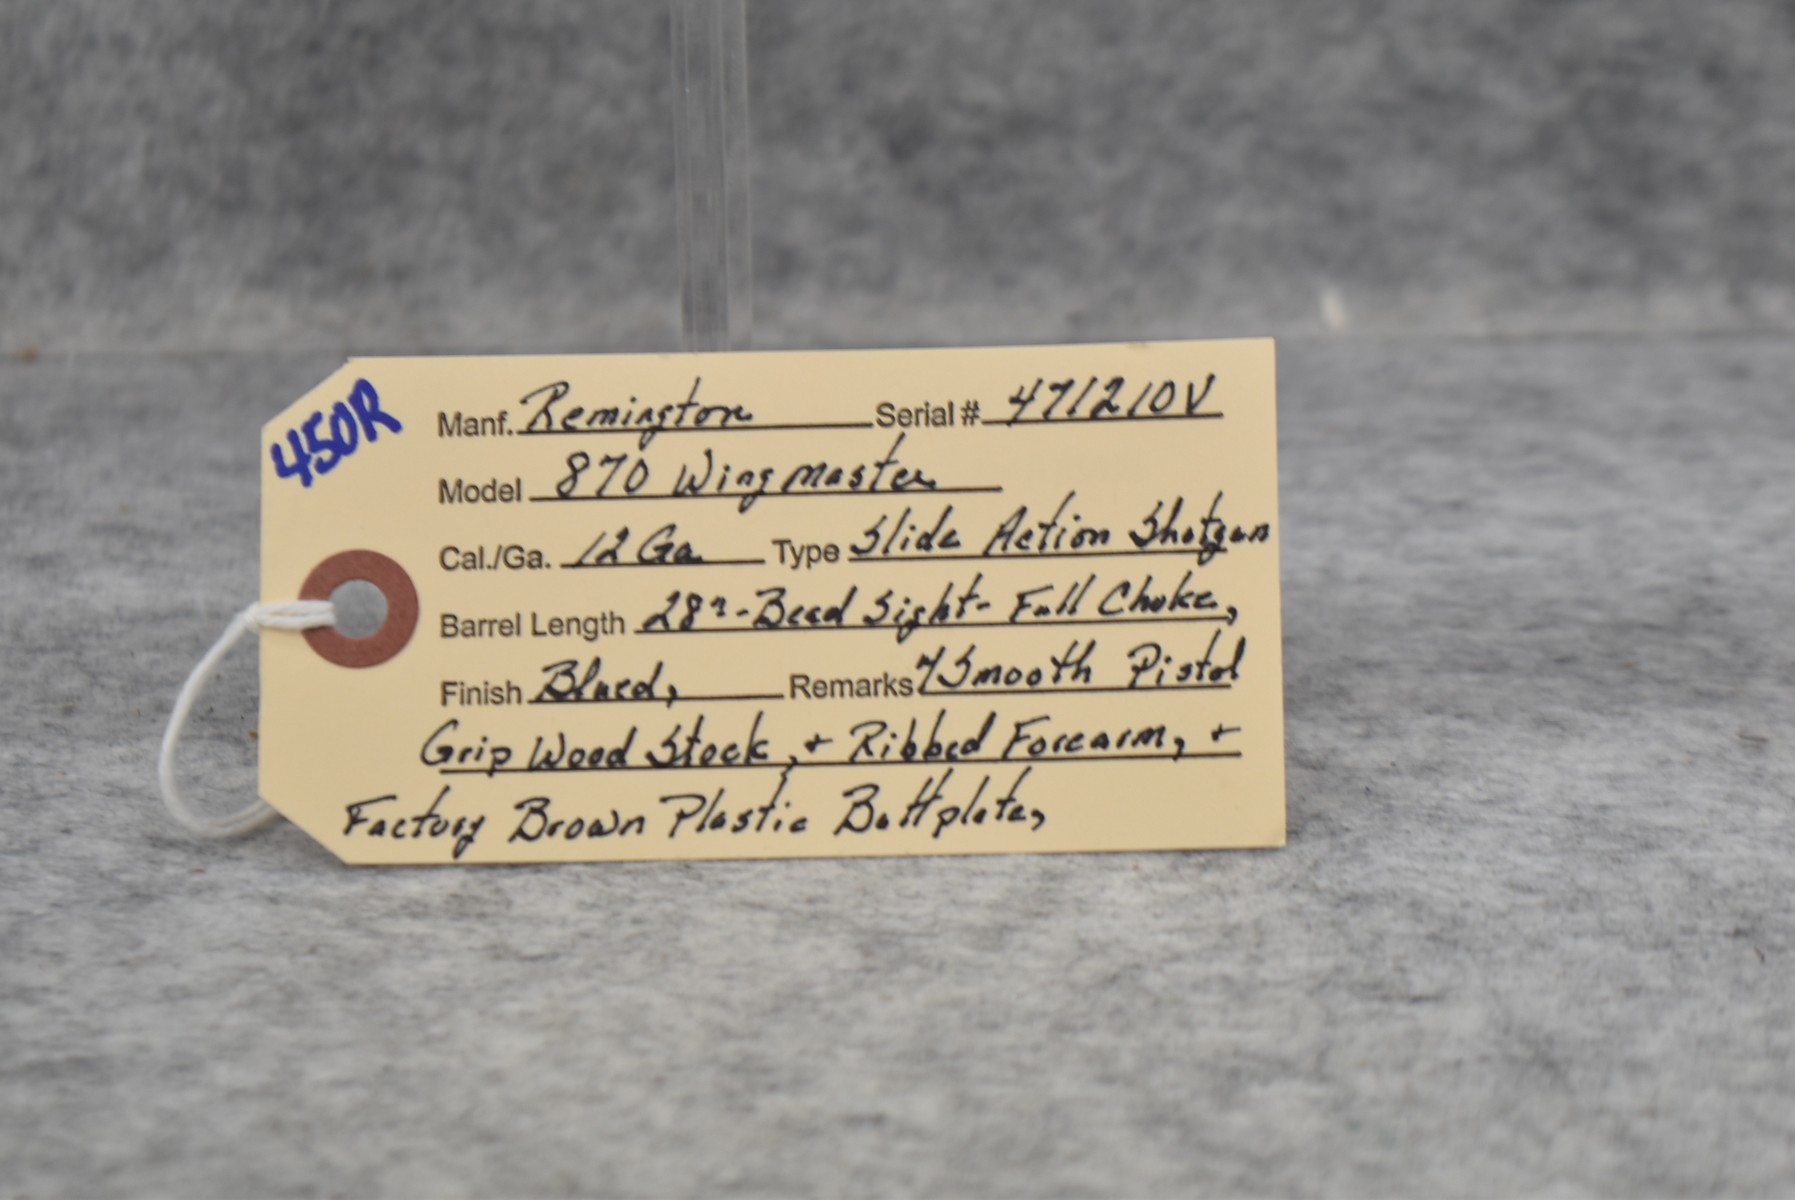 450R
Manf. Remington Serial # 471210V
Model 870 Wingmaster
Cal./Ga. 12 Ga. Type Slide Action Shotgun
Barrel Length 28"-Bead Sight- Full Choke,
Finish Blued, Remarks Smooth Pistol
Grip Wood Stock, + Ribbed Forearm, +
Factory Brown Plastic Buttplate,